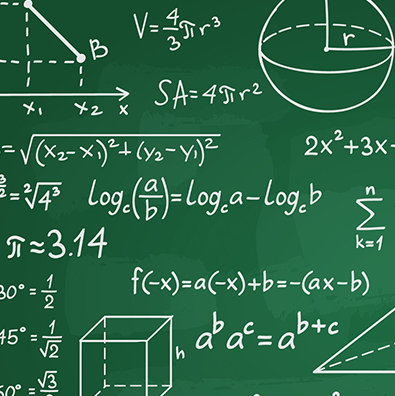 V=4/3πr³
B
r
SA=4πr²
x₁ x₂ x
=√(x₂-x₁)²+(y₂-y₁)²
2x²+3x-
=²√4³
log_c(a/b)=log_c a-log_c b
n
∑
k=1
π≈3.14
f(-x)=a(-x)+b=-(ax-b)
30°=1/2
45°=1/√2
h
aᵇaᶜ=aᵇ⁺ᶜ
60°=√3